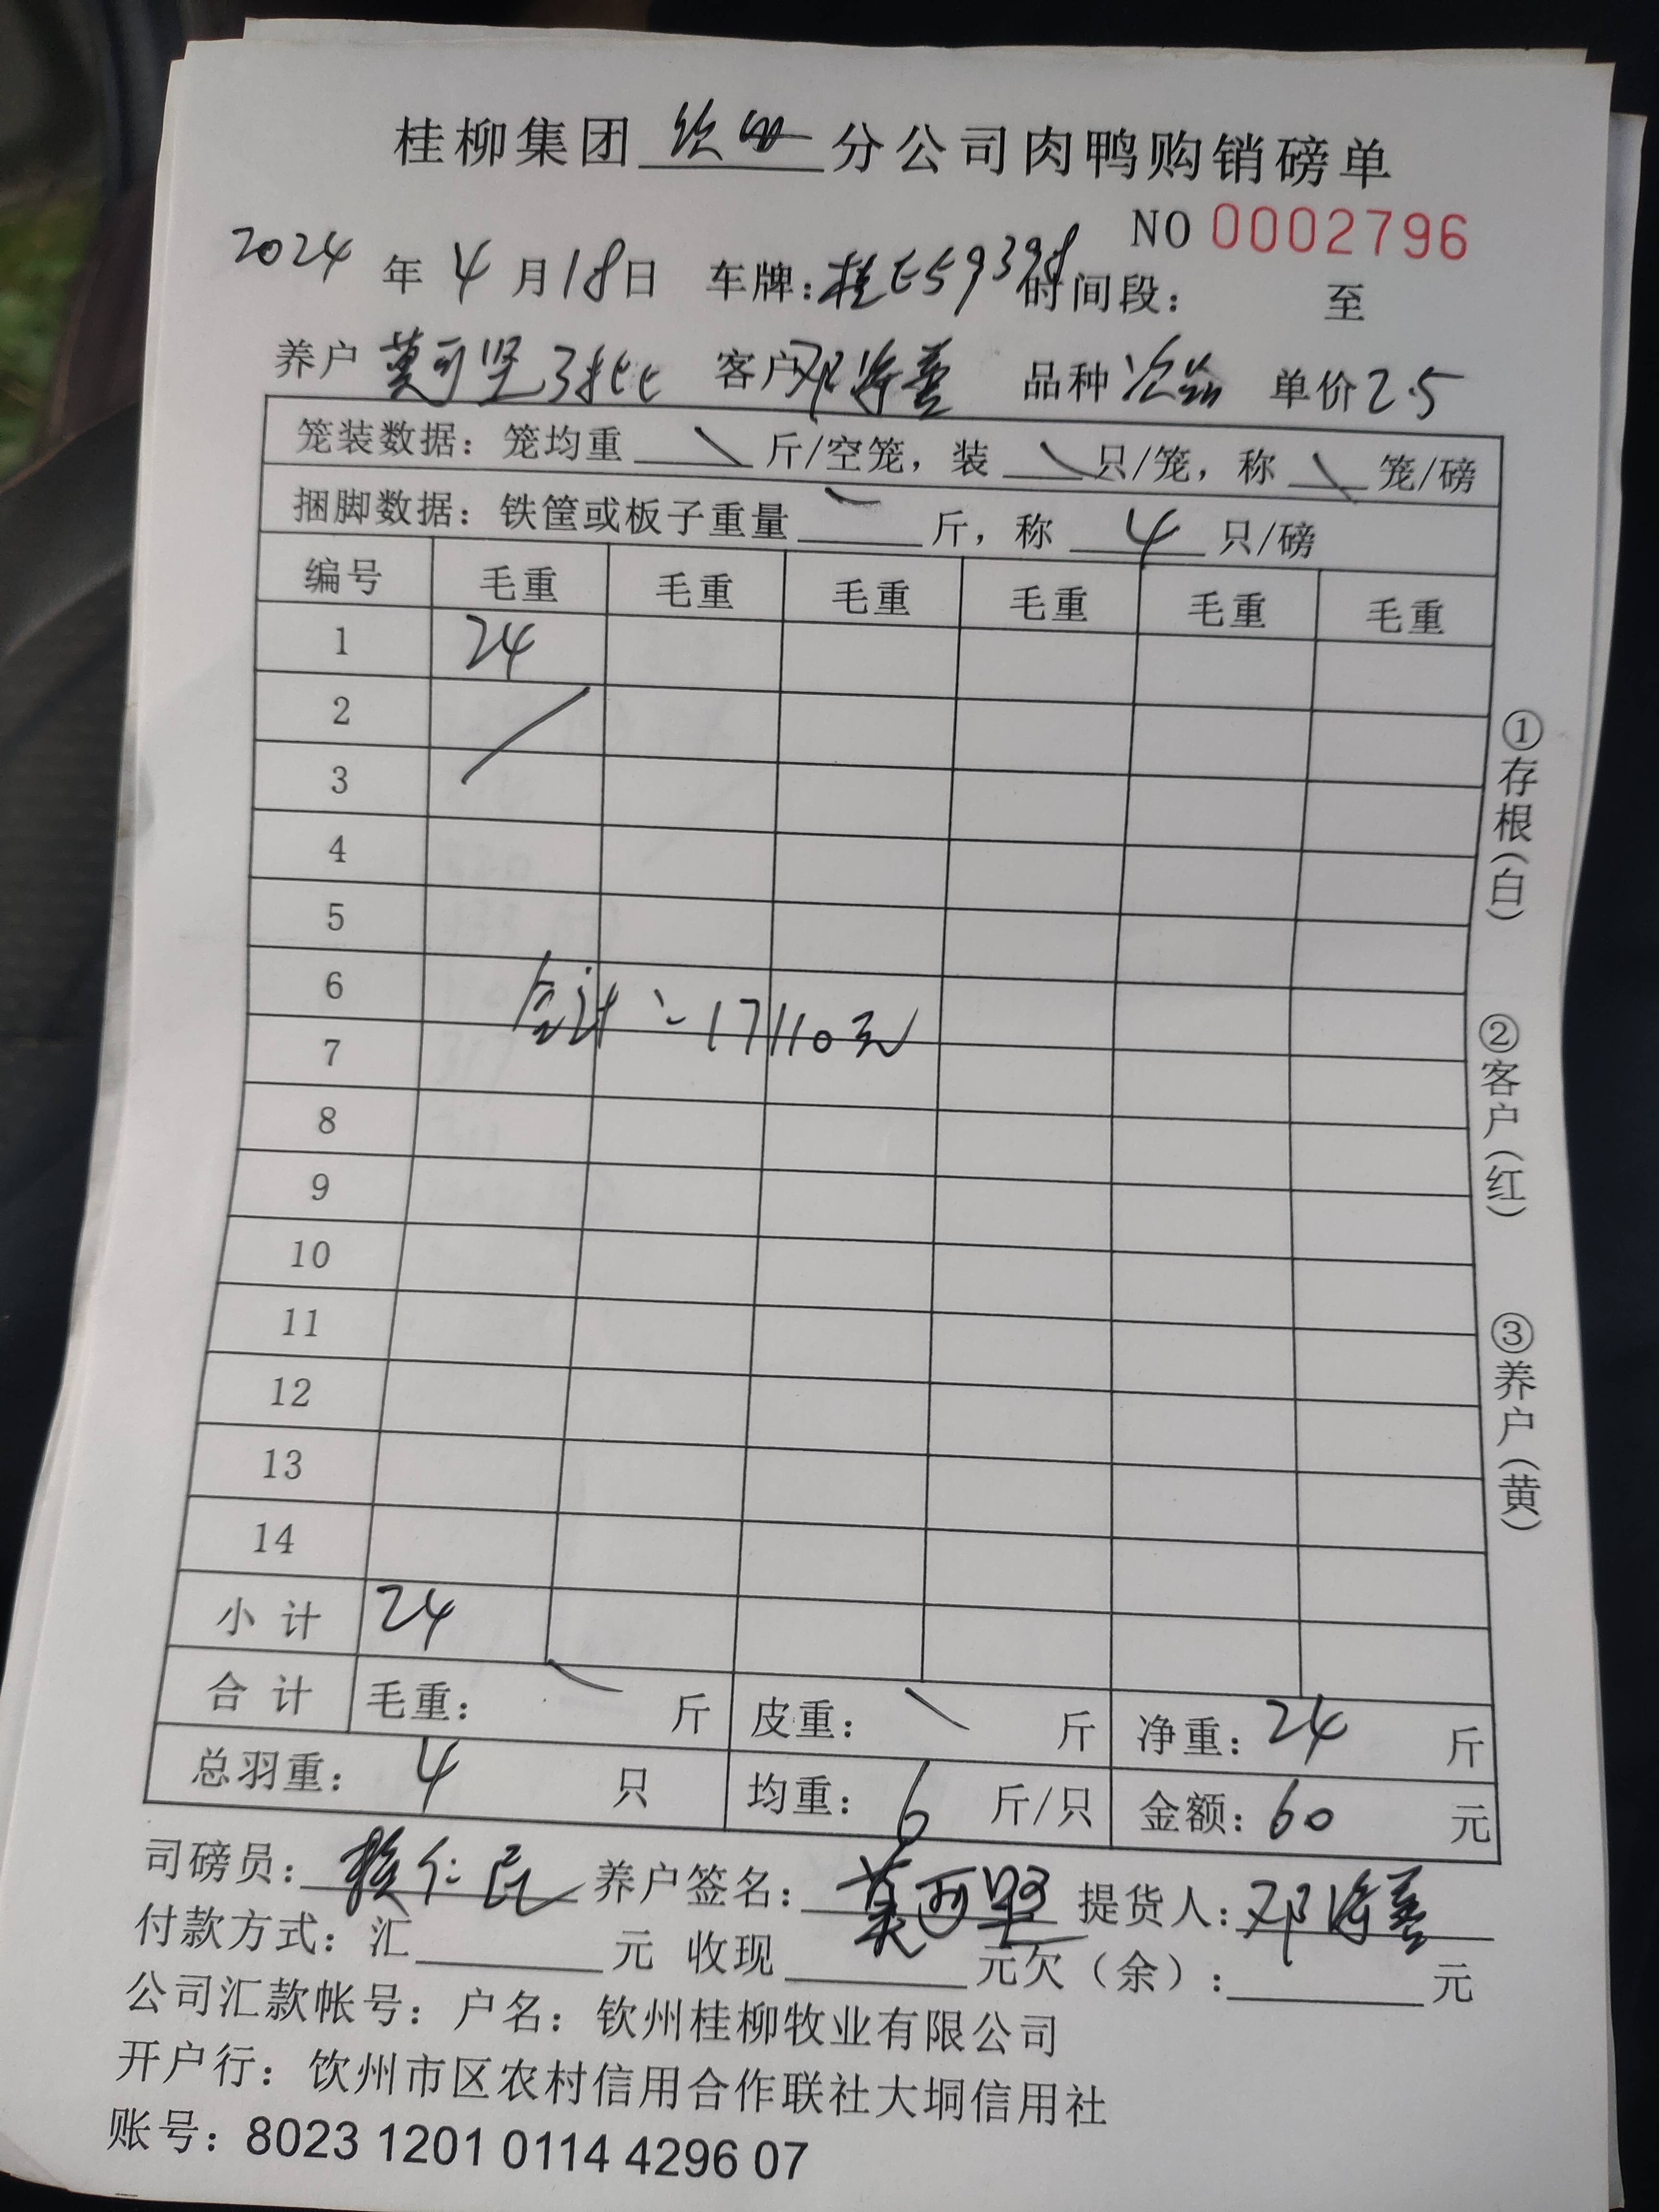 桂柳集团钦州分公司肉鸭购销磅单
NO 0002796
2024年4月18日 车牌:桂E59398 时间段: 至
养户 莫可坚3批 客户 邓 善 品种 次品 单价 2.5
笼装数据:笼均重 \ 斤/空笼,装 \ 只/笼,称 \ 笼/磅
捆脚数据:铁筐或板子重量 \ 斤,称 4 只/磅
编号 毛重 毛重 毛重 毛重 毛重 毛重
1 24
2
3
4
5
6
合计:17110元
7
8
9
10
11
12
13
14
小计 24
合计 毛重: \ 斤 皮重: \ 斤 净重:24 斤
总羽重: 4 只 均重: 6 斤/只 金额:60 元
司磅员: 仁民 养户签名:莫可坚 提货人:邓 善
付款方式:汇 元 收现 元欠(余): 元
公司汇款帐号:户名:钦州桂柳牧业有限公司
开户行:饮州市区农村信用合作联社大垌信用社
账号:8023 1201 0114 4296 07
①存根(白)
②客户(红)
③养户(黄)